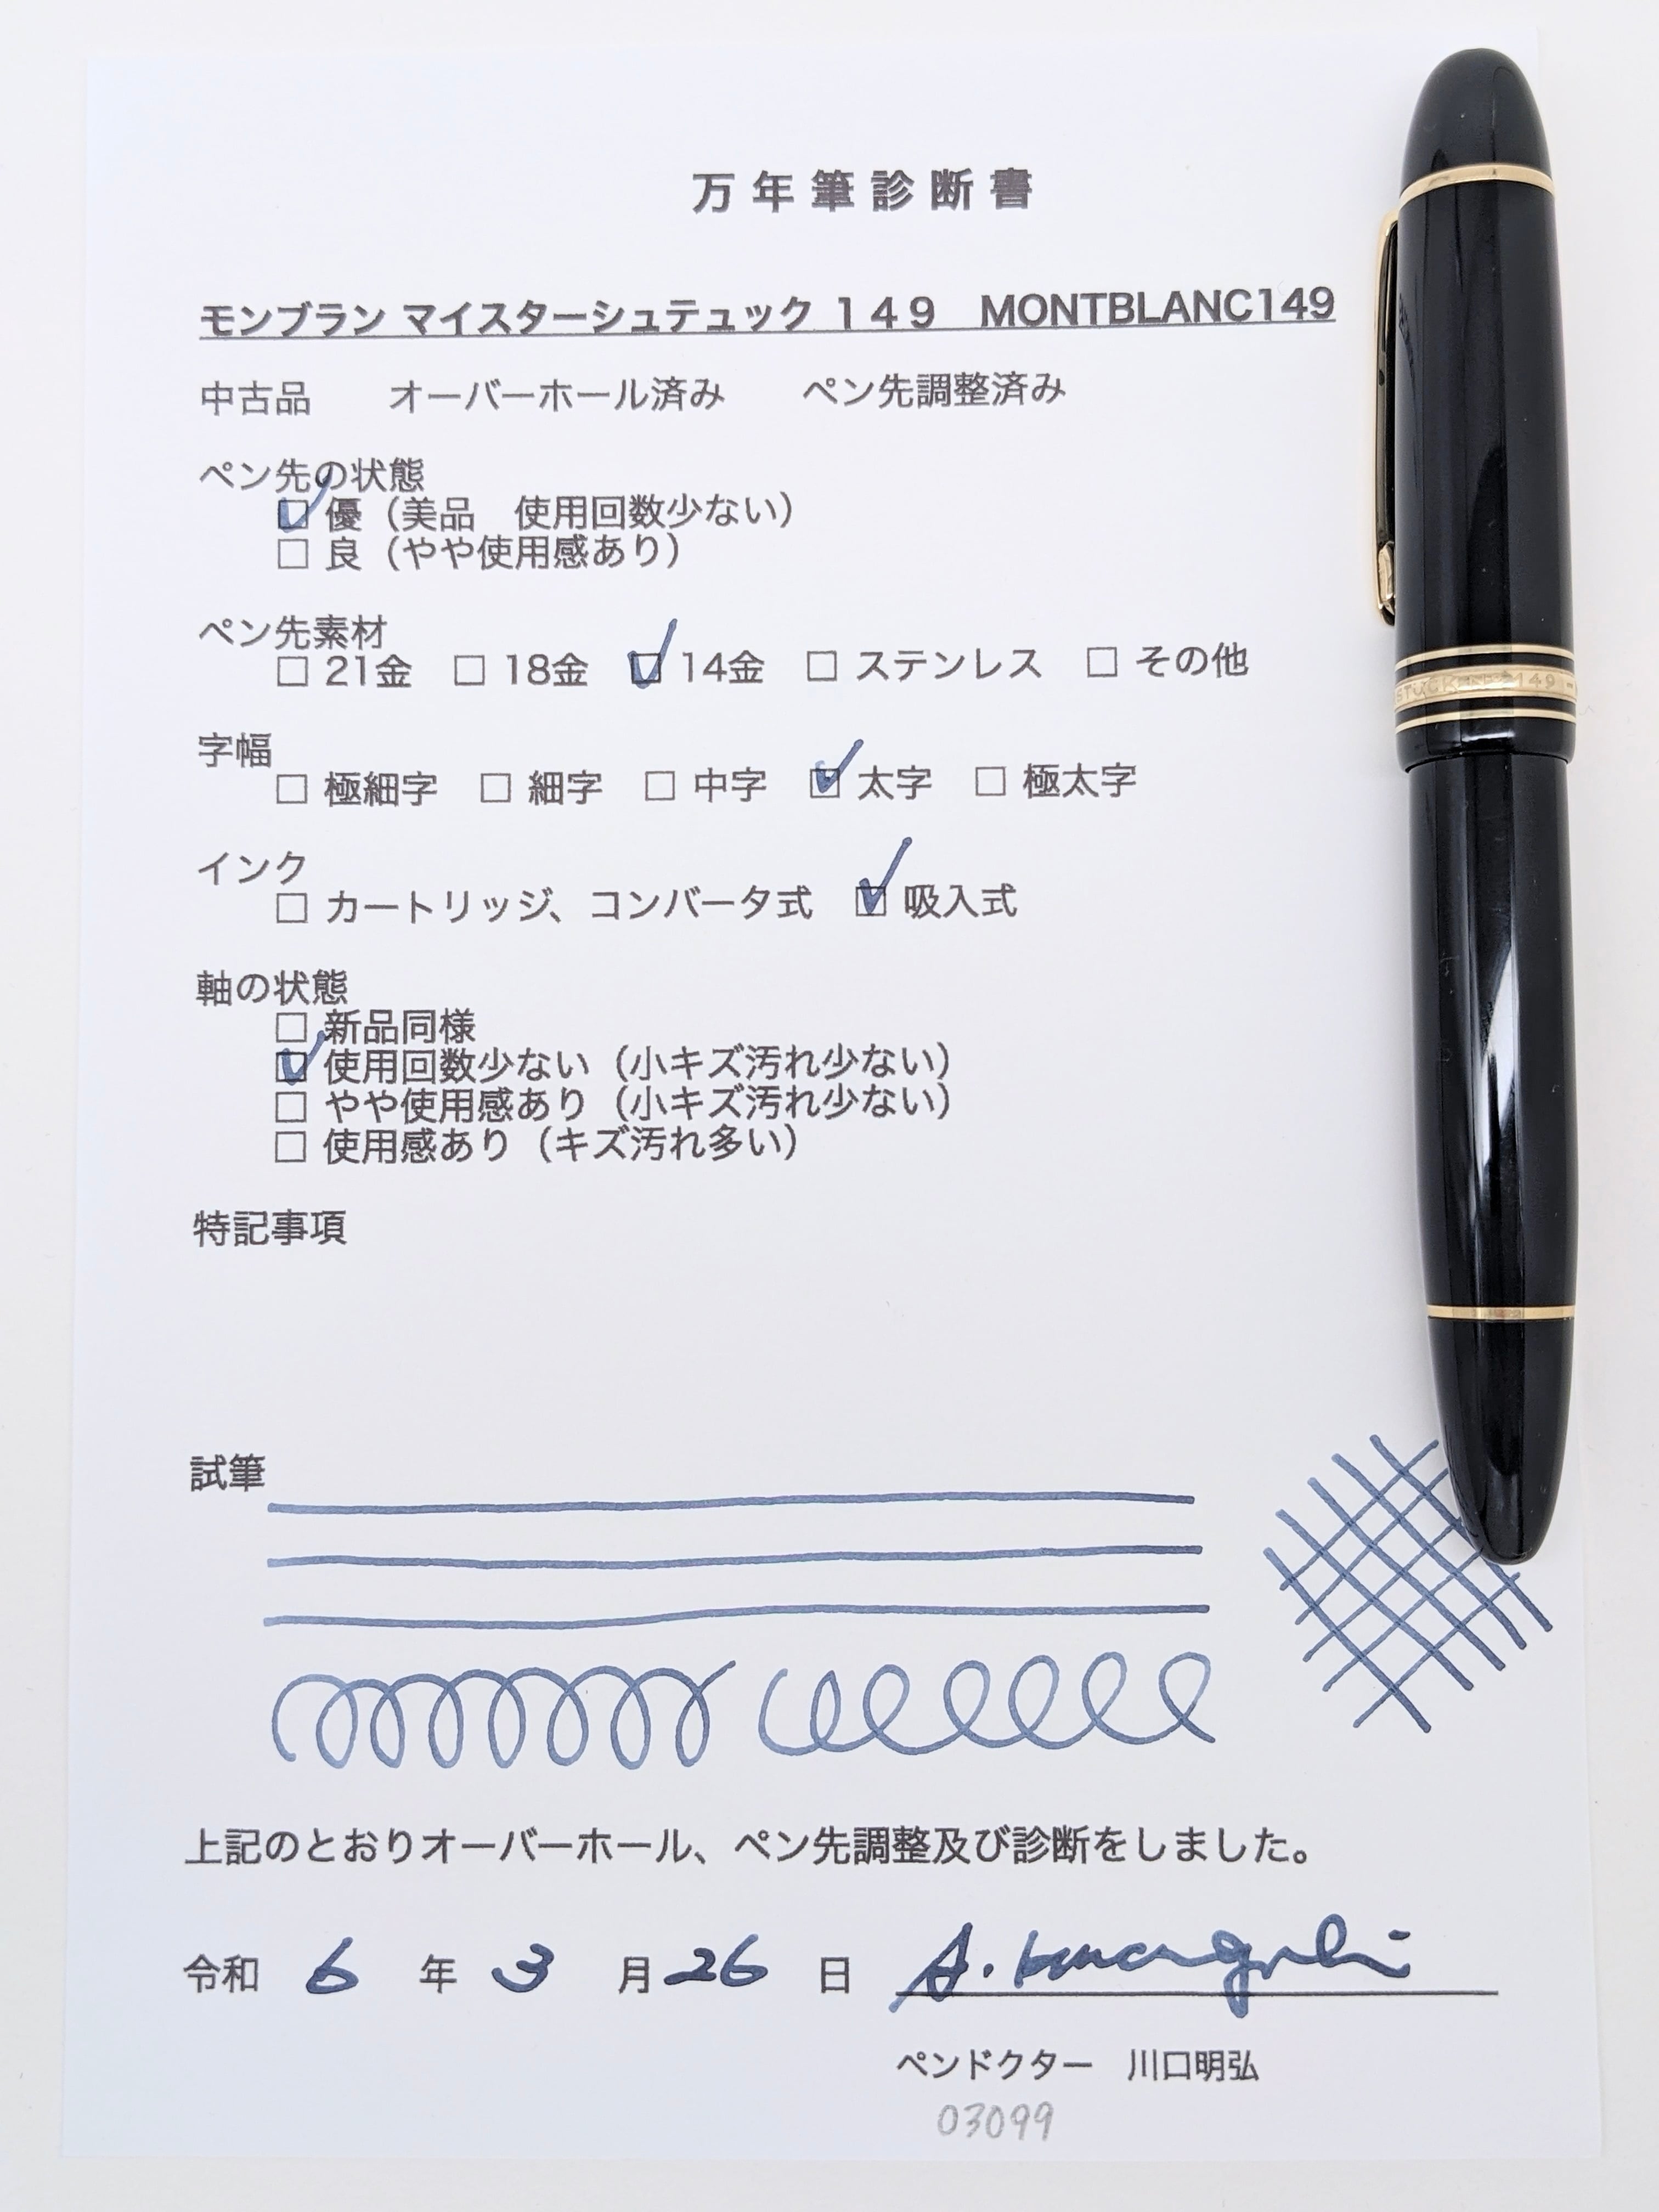 万年筆診断書
モンブラン マイスターシュテュック １４９　MONTBLANC149
中古品　　オーバーホール済み　　ペン先調整済み
ペン先の状態
☑ 優（美品　使用回数少ない）
□ 良（やや使用感あり）
ペン先素材
□ 21金　□ 18金　☑ 14金　□ ステンレス　□ その他
字幅
□ 極細字　□ 細字　□ 中字　☑ 太字　□ 極太字
インク
□ カートリッジ、コンバータ式　☑ 吸入式
軸の状態
□ 新品同様
☑ 使用回数少ない（小キズ汚れ少ない）
□ やや使用感あり（小キズ汚れ少ない）
□ 使用感あり（キズ汚れ多い）
特記事項
試筆
上記のとおりオーバーホール、ペン先調整及び診断をしました。
令和 6 年 3 月 26 日
ペンドクター　川口明弘
03099
149